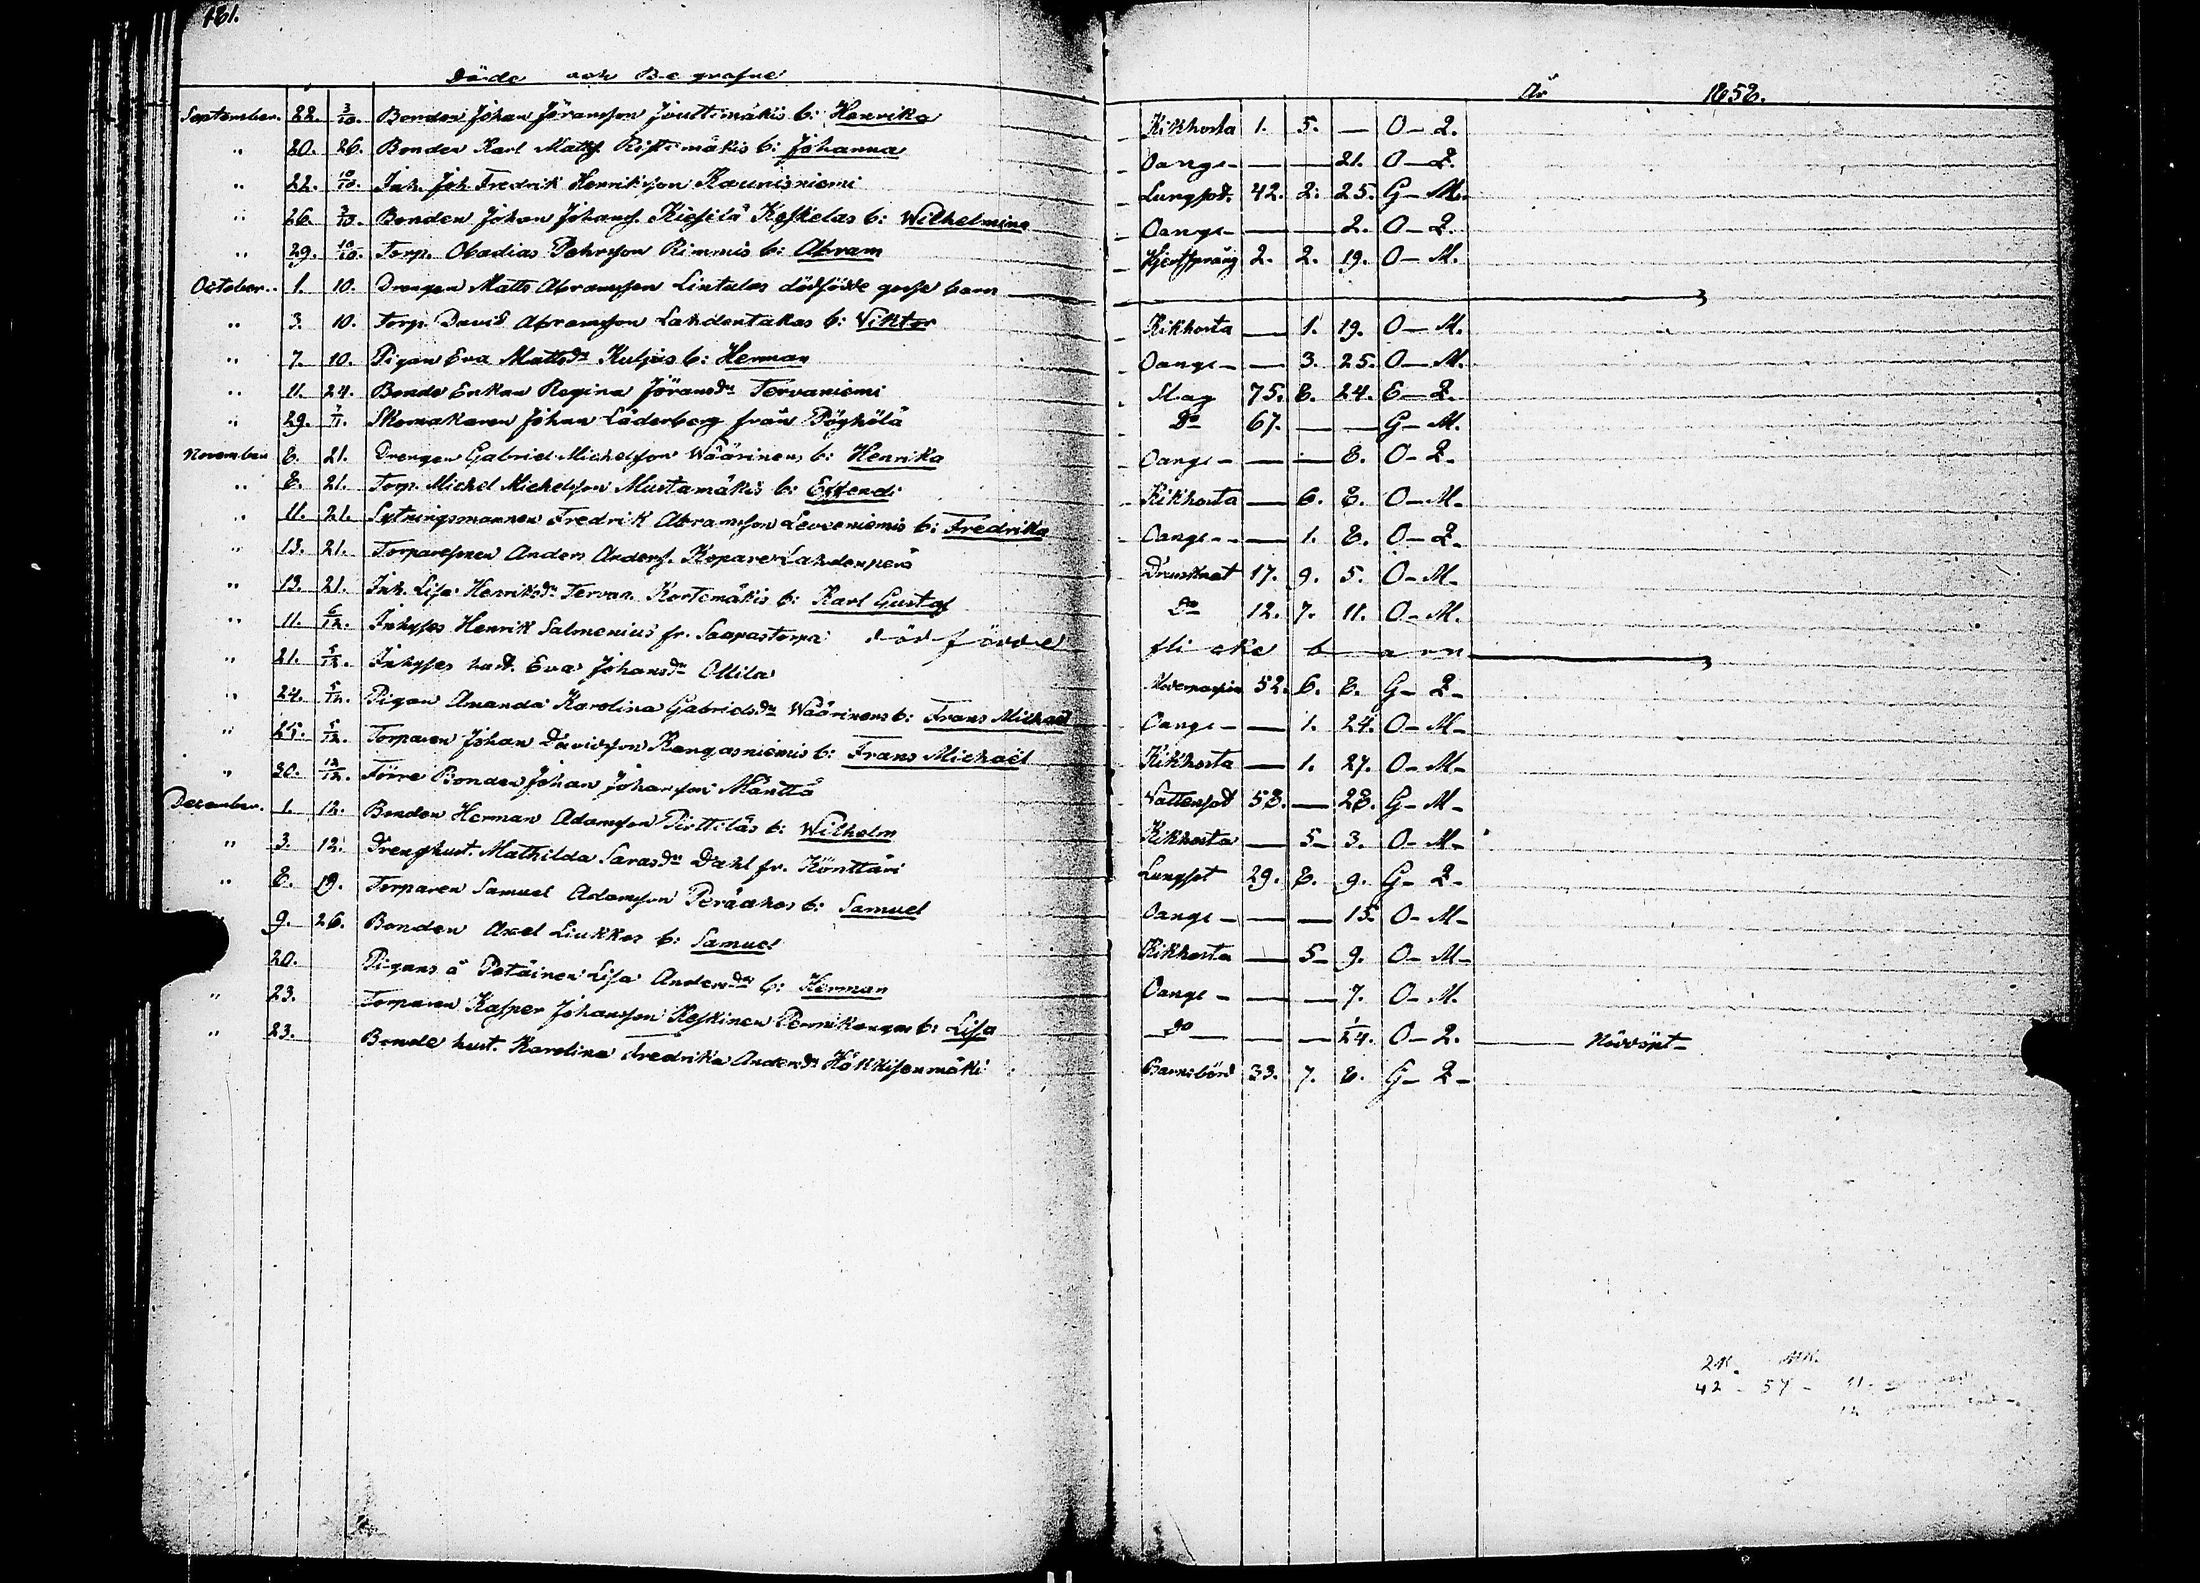 181.
Döde och Begrafne År 1858.
September. 22. 3/10. Bonden Johan Jöransson Jouttimäkis b: Henrika Kikhosta 1. 5. — O — Q.
" 20. 26. Bonden Karl Matts. Ristimäkis b: Johanna Oange — — 21. O — Q.
" 22. 10/10. Inh. Joh. Fredrik Henriksson Kaunisniemi Lungsot. 42. 2. 25. G — M.
" 26. 3/10. Bonden Johan Johans. Kieselä Keskelas b: Wilhelmina Oange — — 2. O — Q.
" 29. 10/10. Torp. Obadias Pehrsson Rimmis b: Abram Hjertsprång 2. 2. 19. O — M.
October. 1. 10. Drengen Matts Abramsson Lintulas dödfödde gosse barn
" 3. 10. Torp. David Abramsson Lahdentakas b: Viktor Kikhosta — 1. 19. O — M.
" 7. 10. Pigan Eva Mattsdr Kuljus b: Herman Oange — 3. 25. O — M.
" 11. 24. Bonde Enkan Regina Jöransdr Tervaniemi Slag 75. 8. 24. E — Q.
" 29. 7/11. Skomakaren Johan Läderberg från Pöyhölä Do 67. — — G — M.
November 8. 21. Drengen Gabriel Michelsson Wäärinens b: Henrika Oange — — 8. O — Q.
" 8. 21. Torp. Michel Michelsson Mustamäkis b: Effendi Kikhosta — 6. 8. O — M.
" 11. 21. Sytningsmannen Fredrik Abramsson Leveeniemis b: Fredrika Oange — 1. 8. O — Q.
" 13. 21. Torparesonen Anders Anders. Kopare Lahdenperä Drunknat 17. 9. 5. O — M.
" 13. 21. Inh. Lisa Henriksdr Tervas. Kortemäkis b: Karl Gustaf Do 12. 7. 11. O — M.
" 11. 6/12. Inhyses Henrik Salmenius fr. Saapastorpa dödfödde flicke barn
" 21. 5/12. Inhyses hust. Eva Johansdr Ollila 52. 6. 8. G — Q.
" 24. 5/12. Pigan Amanda Karolina Gabrielsdr Wäärinens b: Frans Michaël Oange — 1. 24. O — M.
" 25. 5/12. Torparen Johan Davidsson Kangasniemis b: Frans Michaël Kikhosta — 1. 27. O — M.
" 30. 12/12. Förre Bonden Johan Johansson Mänttä Vattensot 58. — 28. G — M.
December. 1. 12. Bonden Herman Adamsson Pirttiläs b: Wilhelm Kikhosta — 5. 3. O — M.
" 3. 12. Drenghust. Mathilda Sarasdr Dahl fr. Könttäri Lungsot 29. 8. 9. G — Q.
" 8. 19. Torparen Samuel Adamsson Peräahos b: Samuel Oange — — 15. O — M.
9. 26. Bonden Axel Liukkos b: Samuel Kikhosta — 5. 9. O — M.
20. Pigans å Potäinen Lisa Andersdr b: Herman Oange — — 7. O — M.
" 23. Torparen Kasper Johansson Keskinen b: Lisa Do — — 1/24. O — Q. — Nöddöpt
" 23. Bonde hust. Karolina Fredrika Andersdr Häkkisenmäki Barnsbörd 33. 7. 8. G — Q.
QK. MK.
42 — 57 —